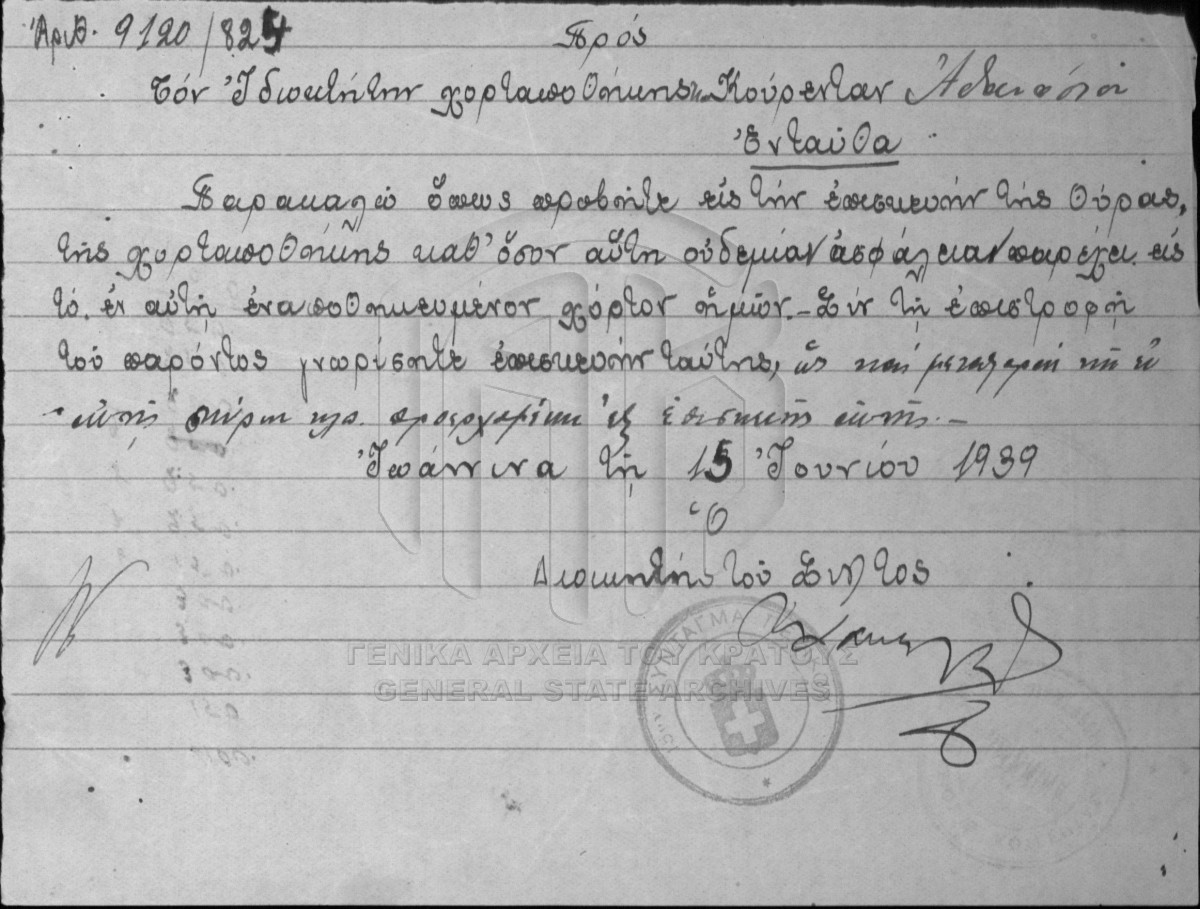 Ἀριθ. 9120/824
Πρός
Τόν Ἰδιοκτήτην χορταποθήκης "Κούρενταν Ἀθανάσιον
Ἐνταῦθα
Παρακαλῶ ὅπως προβῆτε εἰς τήν ἐπισκευήν τῆς θύρας,
τῆς χορταποθήκης καθ' ὅσον αὕτη οὐδεμίαν ἀσφάλειαν παρέχει εἰς
τό ἐν αὐτῇ ἐναποθηκευμένον χόρτον ἡμῶν.- Σύν τῇ ἐπιστροφῇ
τοῦ παρόντος γνωρίσητε ἐπισκευήν ταύτης, ὡς καί
αὐτῆς αὐτῆς.-
Ἰωάννινα τῇ 15 Ἰουνίου 1939
Ὁ
Διοικητής τοῦ Συν/τος
ΓΕΝΙΚΑ ΑΡΧΕΙΑ ΤΟΥ ΚΡΑΤΟΥΣ
GENERAL STATE ARCHIVES
15ον ΣΥΝΤΑΓΜΑ